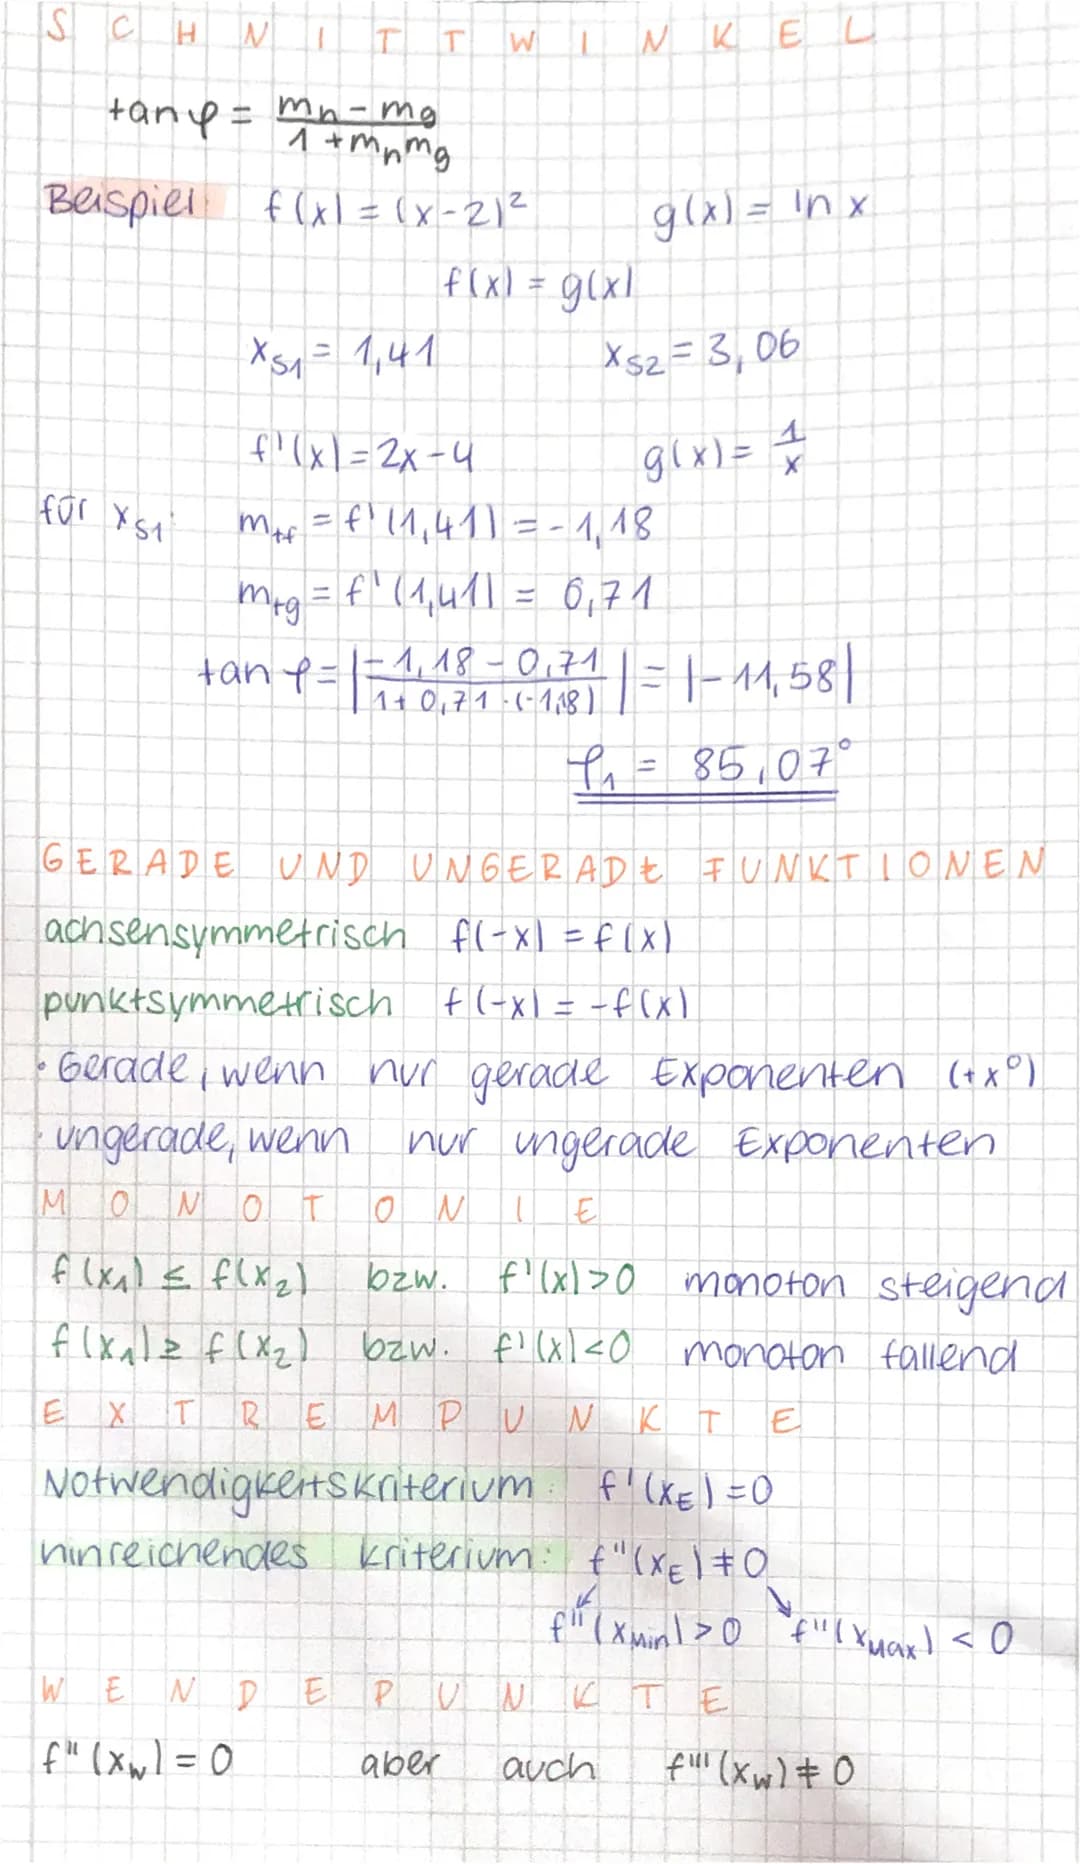 SCHNITTWINKEL
tan φ = (mₙ - m_g) / (1 + mₙ m_g)
Beispiel: f(x) = (x-2)² g(x) = ln x
f(x) = g(x)
x_S1 = 1,41 x_S2 = 3,06
f'(x) = 2x-4 g(x) = 1/x
für x_S1: m_tf = f'(1,41) = -1,18
m_tg = f'(1,41) = 0,71
tan φ = |(-1,18 - 0,71) / (1 + 0,71 · (-1,18))| = |-11,58|
φ₁ = 85,07°
GERADE UND UNGERADE FUNKTIONEN
achsensymmetrisch f(-x) = f(x)
punktsymmetrisch f(-x) = -f(x)
· Gerade, wenn nur gerade Exponenten (+x⁰)
· ungerade, wenn nur ungerade Exponenten
MONOTONIE
f(x₁) ≤ f(x₂) bzw. f'(x) > 0 monoton steigend
f(x₁) ≥ f(x₂) bzw. f'(x) < 0 monoton fallend
EXTREMPUNKTE
Notwendigkeitskriterium: f'(x_E) = 0
hinreichendes Kriterium: f''(x_E) ≠ 0
↙ ↘
f''(x_Min) > 0 f''(x_Max) < 0
WENDEPUNKTE
f''(x_W) = 0 aber auch f'''(x_W) ≠ 0